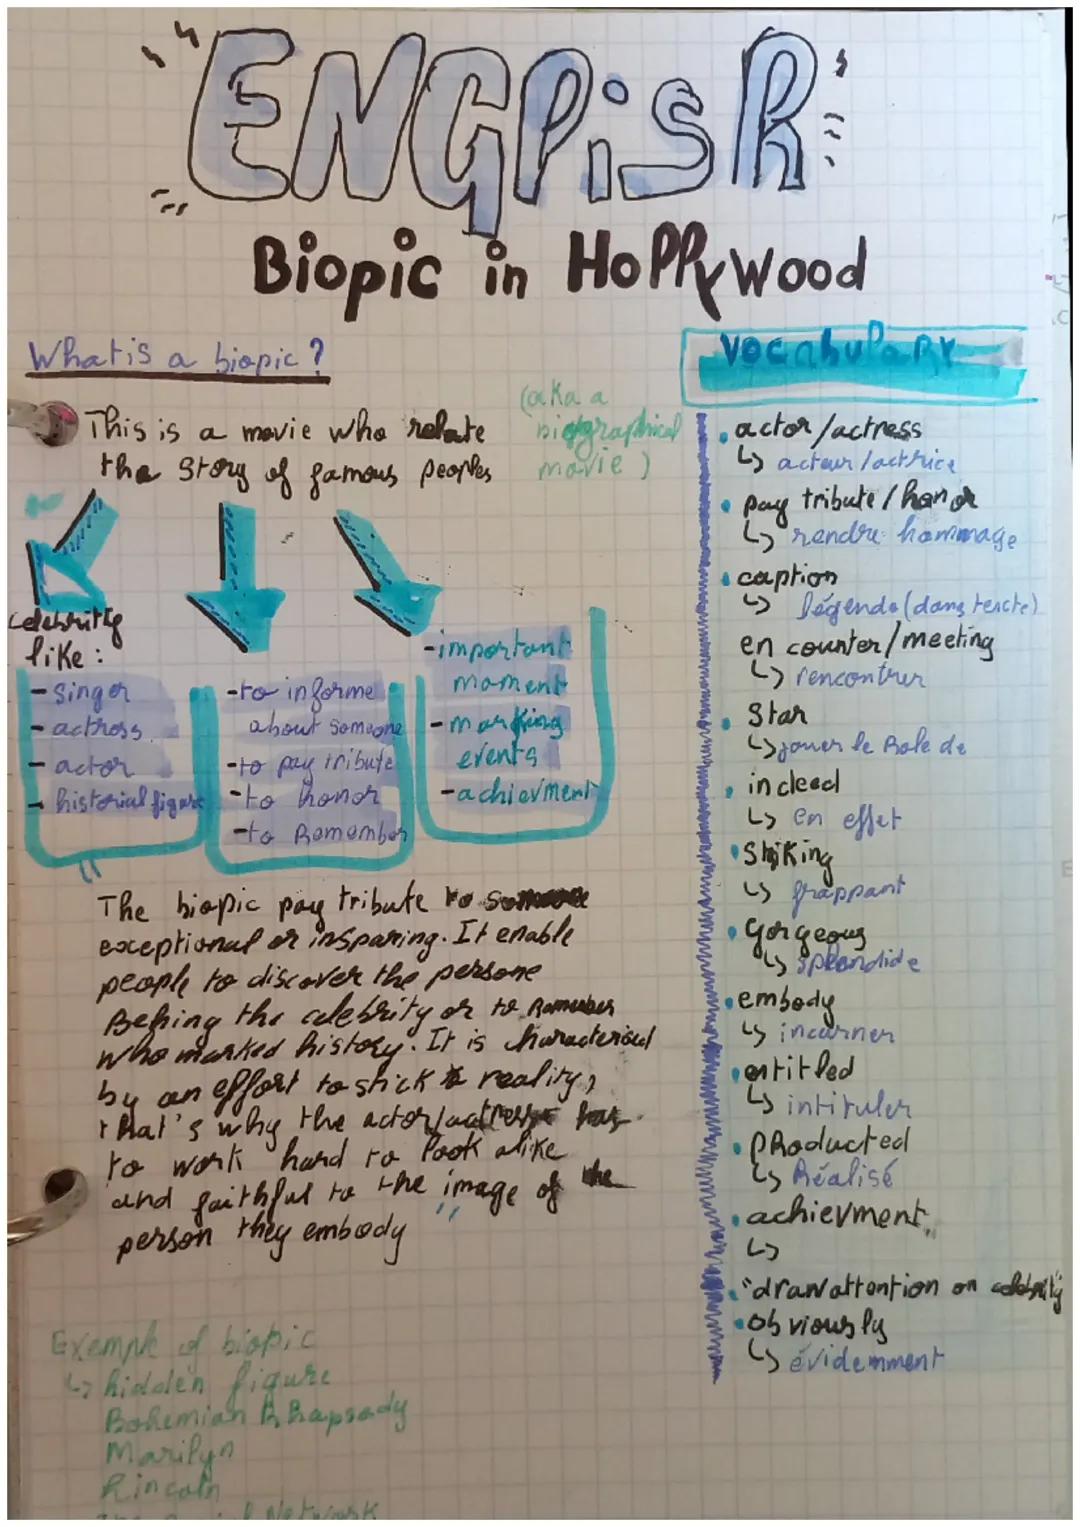 ENGLISH
Biopic in Hollywood
What is a biopic ?
This is a movie who relate
the story of famous peoples
(aka a
biographical
movie )
celebrity
like :
- singer
- actress
- actor
- historial figure
- to informe
about someone
- to pay tribute
- to honor
- to Remember
- important
moment
- marking
events
- achievment
" The biopic pay tribute to
exceptional or insparing. It enable
people to discover the persone
Behing the celebrity or to Remember
who marked history. It is characterised
by an effort to stick to reality,
that's why the actor/actress has
to work hard to look alike
and faithful to the image of the
person they embody "
Exemple of biopic
↳ hidden figure
Bohemian Rhapsody
Marilyn
Lincoln
Network
Vocabulary
• actor/actress
↳ acteur/actrice
• pay tribute/honor
↳ rendre hommage
• caption
↳ légende (dans texte)
en counter/meeting
↳ rencontrer
• Star
↳ jouer le Role de
• indeed
↳ en effet
• Striking
↳ frappant
• gorgeous
↳ splendide
• embody
↳ incarner
• entitled
↳ intituler
• producted
↳ Réalisé
• achievment
↳
• "draw attention on celebrity"
• obviously
↳ évidemment